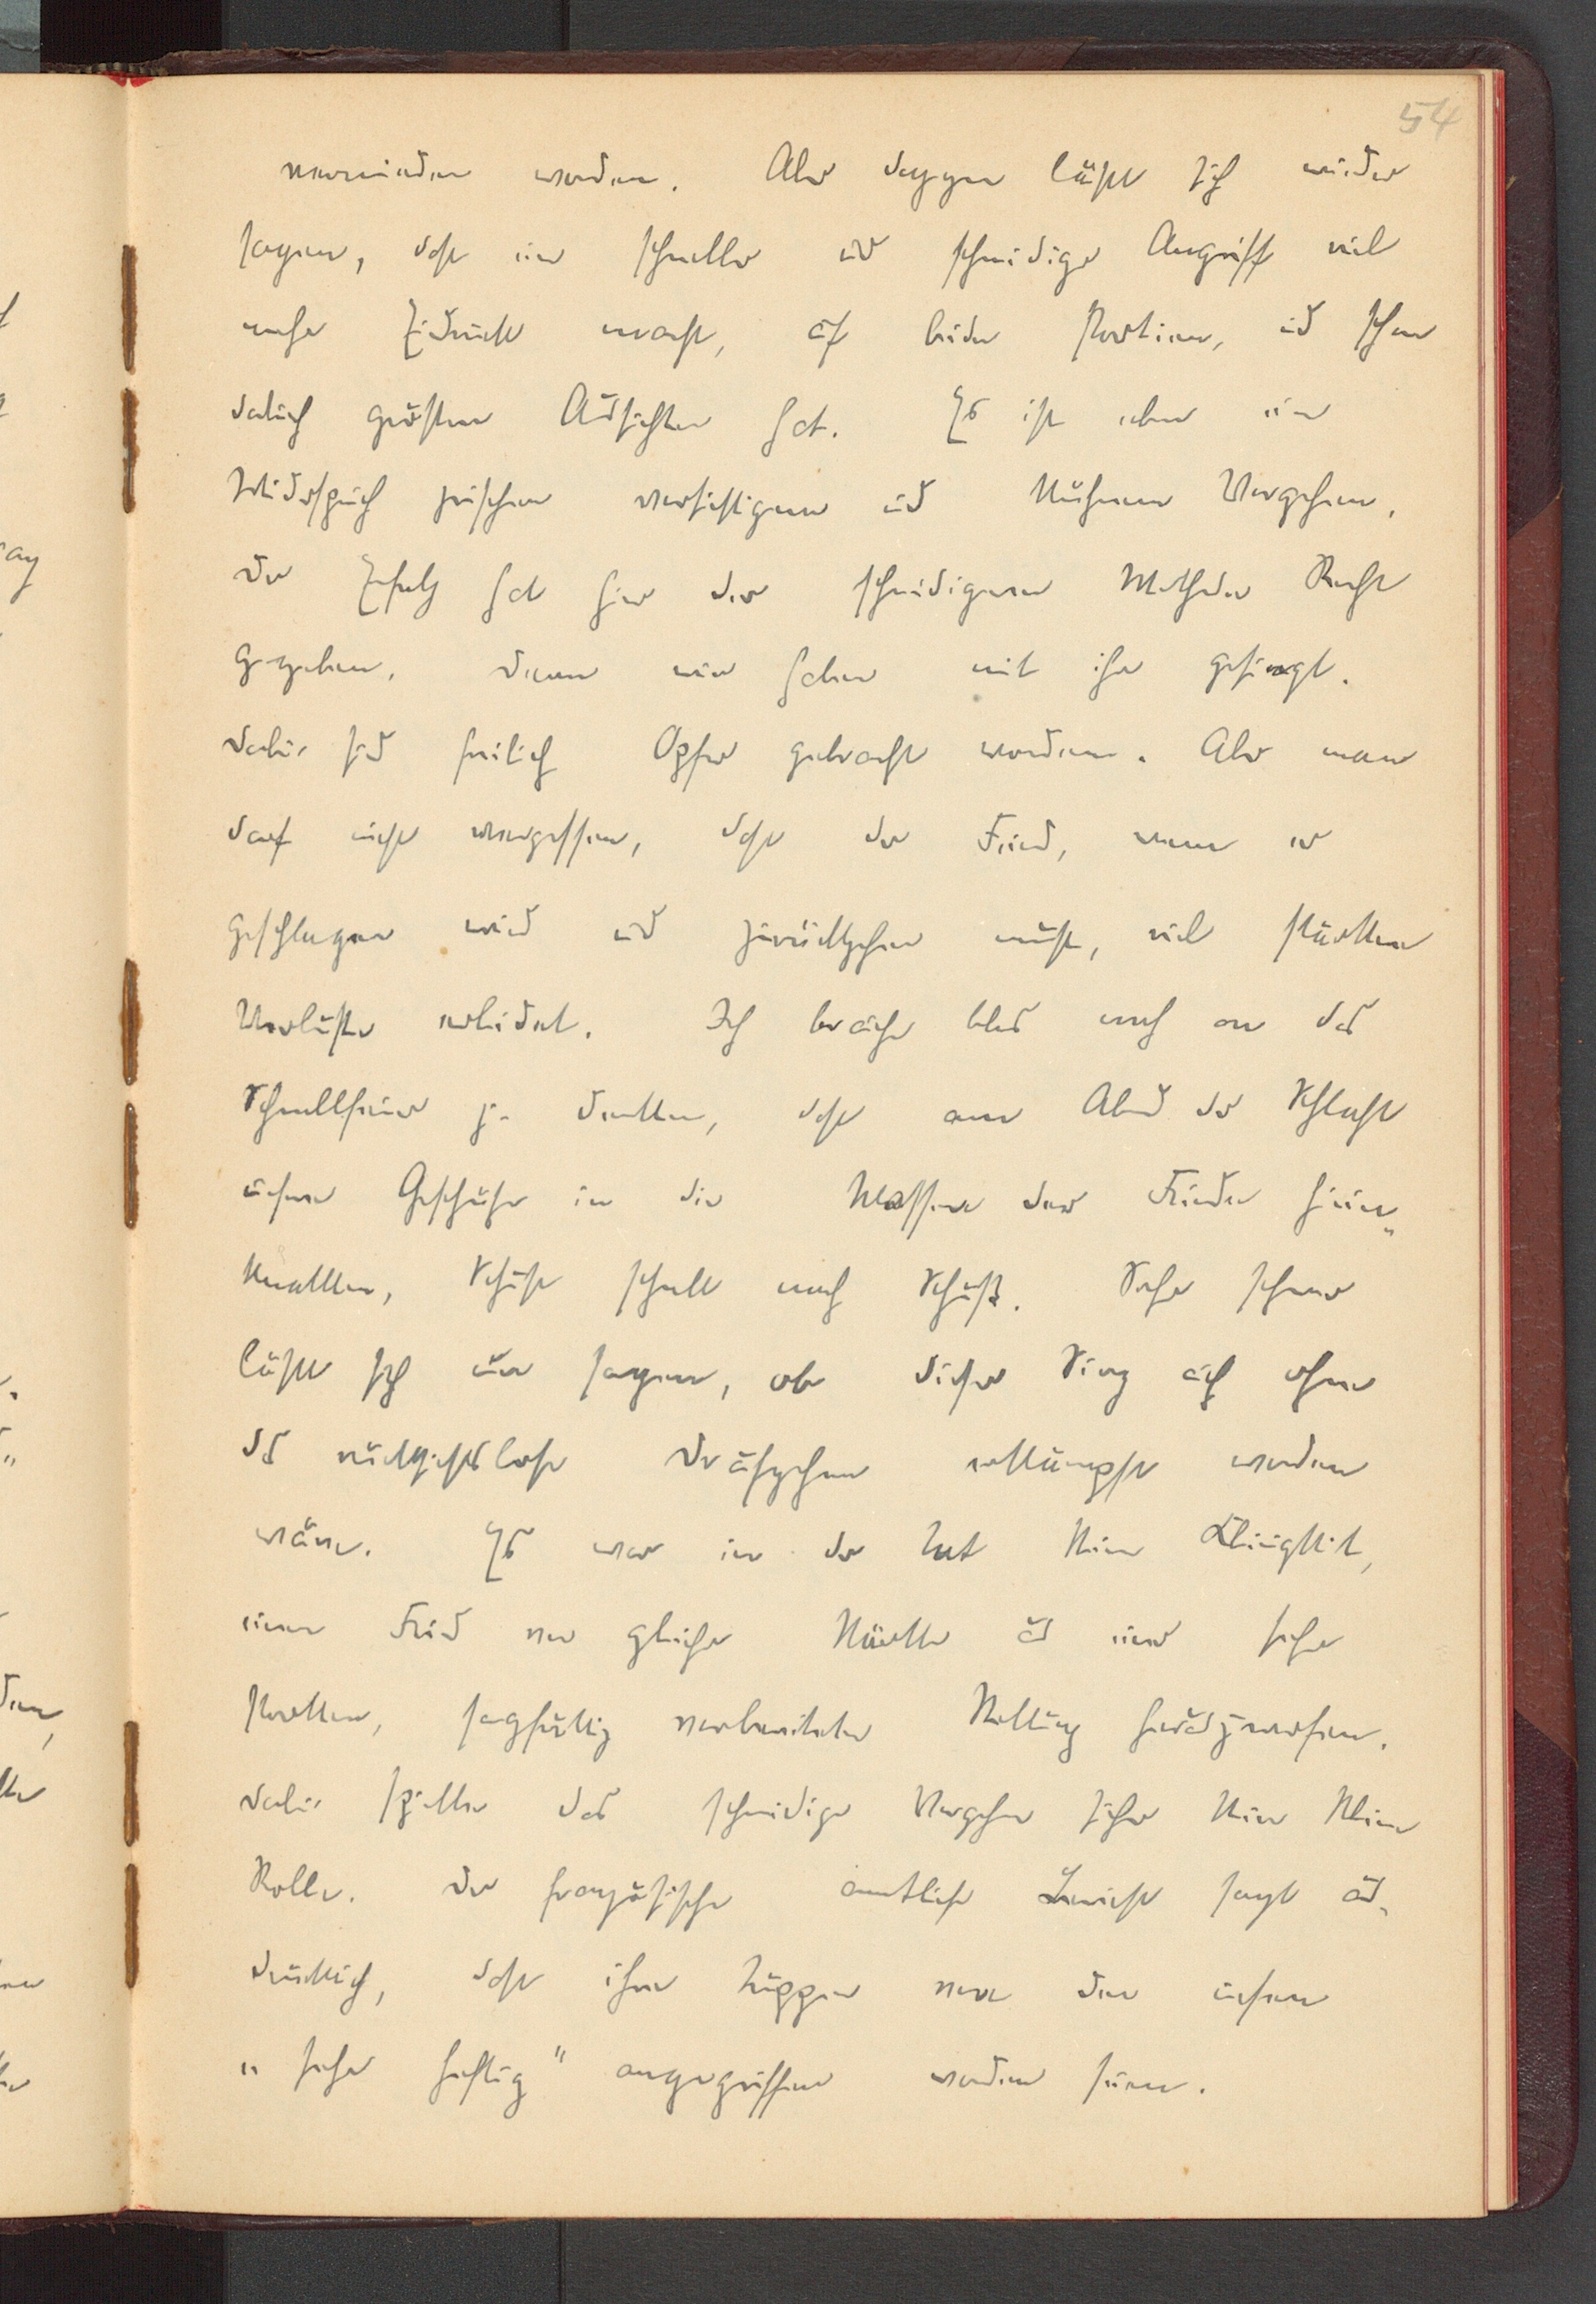 vermieden werden. Aber dagegen läßt sich wieder
sagen, daß ein schneller und schneidiger Angriff viel
mehr Eindruck macht, auf beide Parteien, und schon
dadurch größere Aussichten hat. Es ist eben ein
Widerspruch zwischen vorsichtigem und kühnem Vorgehen.
Der Erfolg hat hier der schneidigeren Methode Recht
gegeben, denn wir haben mit ihr gesiegt.
Dabei sind freilich Opfer gebracht worden. Aber man
darf nicht vergessen, daß der Feind, wenn er
geschlagen wird und zurückgehen muß, viel stärkere
Verluste erleidet. Ich brauche blos noch an das
Schnellfeuer zu denken, daß am Abend der Schlacht
unsere Geschütze in die Massen der Feinde hinein„
knallten, Schuß schnell nach Schuß. Sehr schwer
läßt sich nun sagen, ob dieser Sieg auch ohne
das rücksichtslose Draufgehen erkämpft worden
wäre. Es war in der Tat keine Kleinigkeit,
einen Feind von gleicher Stärke aus einer sehr
starken, sorgfältig vorbereiteten Stellung herauszuwerfen.
Dabei spielte das schneidige Vorgehen sicher keine kleine
Rolle. Der französische amtliche Bericht sagt aus„
drücklich, daß ihre Truppen von den unseren
„sehr heftig" angegriffen worden seien.
54